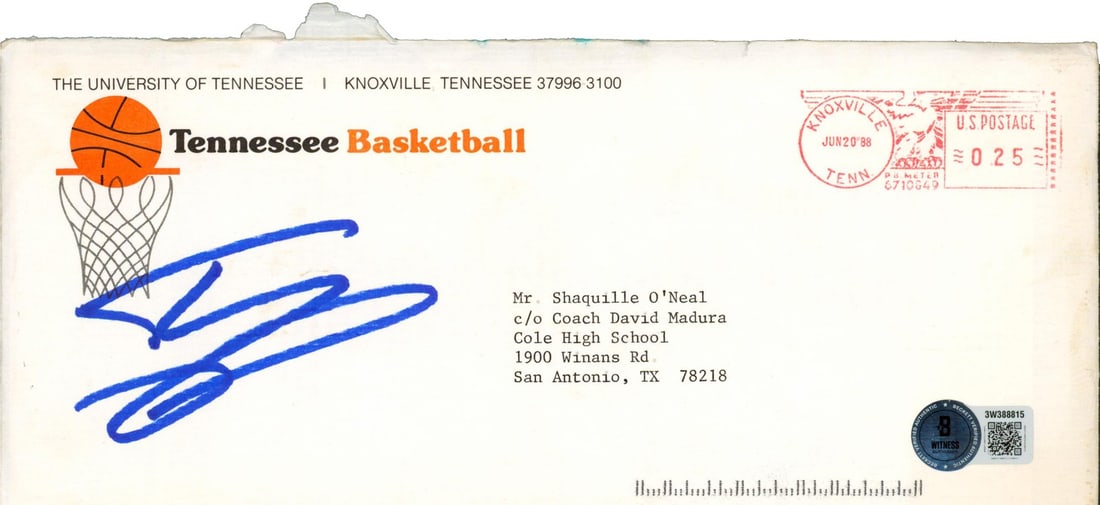 THE UNIVERSITY OF TENNESSEE | KNOXVILLE TENNESSEE 37996 3100
Tennessee Basketball
KNOXVILLE
JUN 20 '88
TENN.
P.B. METER
6710649
U.S. POSTAGE
0.25
Mr. Shaquille O'Neal
c/o Coach David Madura
Cole High School
1900 Winans Rd.
San Antonio, TX 78218
BECKETT VERIFIED AUTHENTIC
B
WITNESS
3W388815